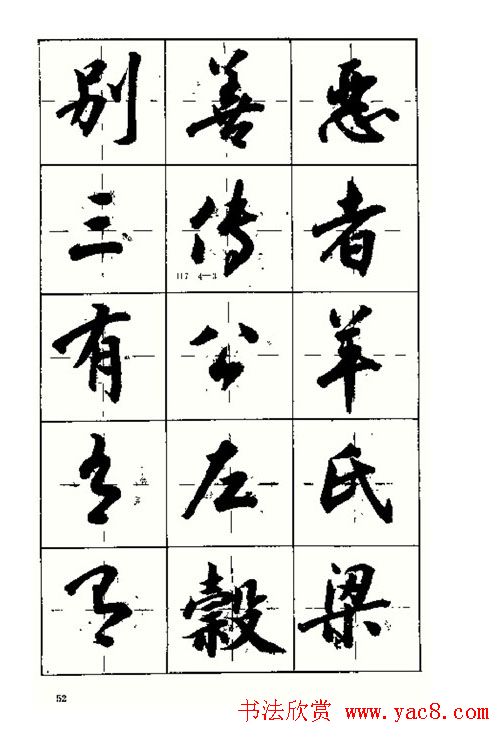 别善惡
三傳者
117 4—3
有公羊
有左氏
有穀梁
52
书法欣赏 www.yac8.com